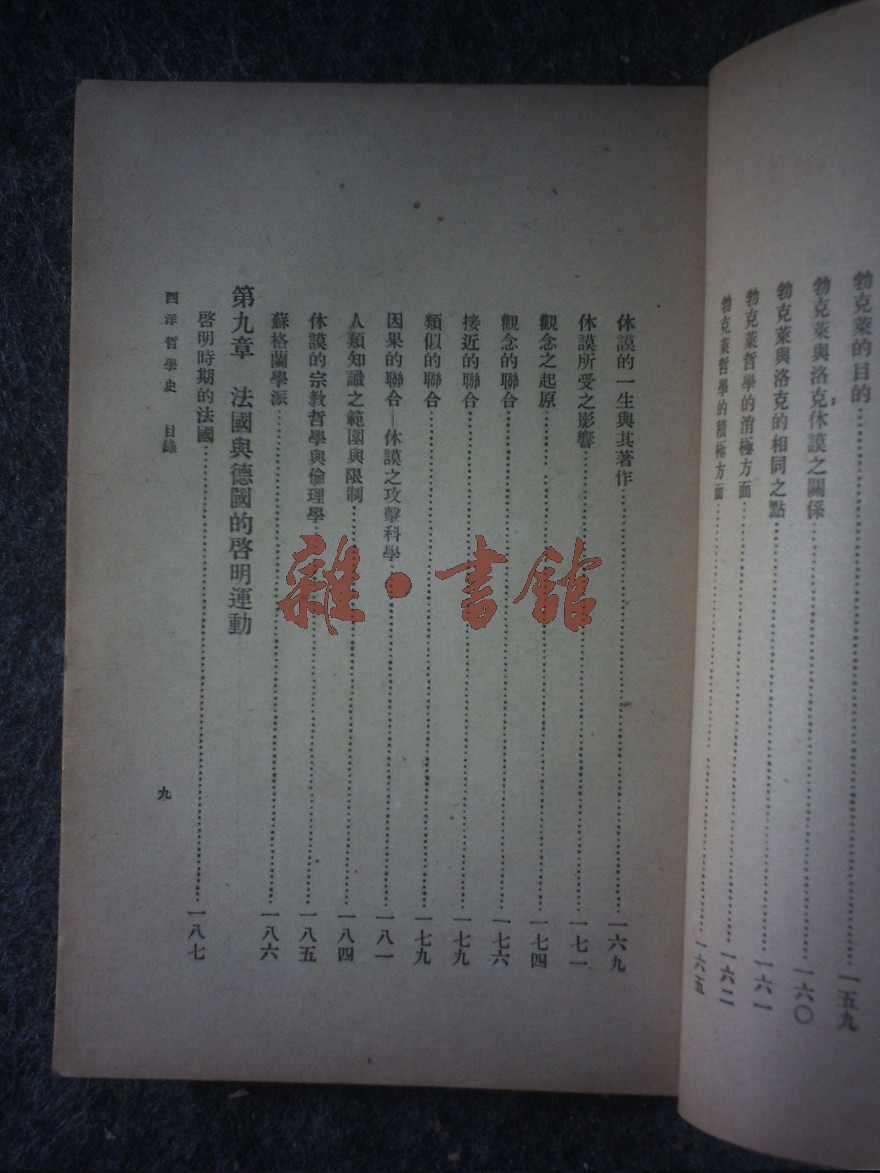 勃克萊的目的……一五九
勃克萊與洛克休謨之關係……一六〇
勃克萊與洛克的相同之點……一六一
勃克萊哲學的消極方面……一六二
勃克萊哲學的積極方面……一六五
休謨的一生與其著作……一六九
休謨所受之影響……一七一
觀念之起原……一七四
觀念的聯合……一七六
接近的聯合……一七九
類似的聯合……一七九
因果的聯合—休謨之攻擊科學……一八一
人類知識之範圍與限制……一八四
休謨的宗教哲學與倫理學……一八五
蘇格蘭學派……一八六
第九章 法國與德國的啓明運動
啓明時期的法國……一八七
西洋哲學史 目錄
九
雜·書館